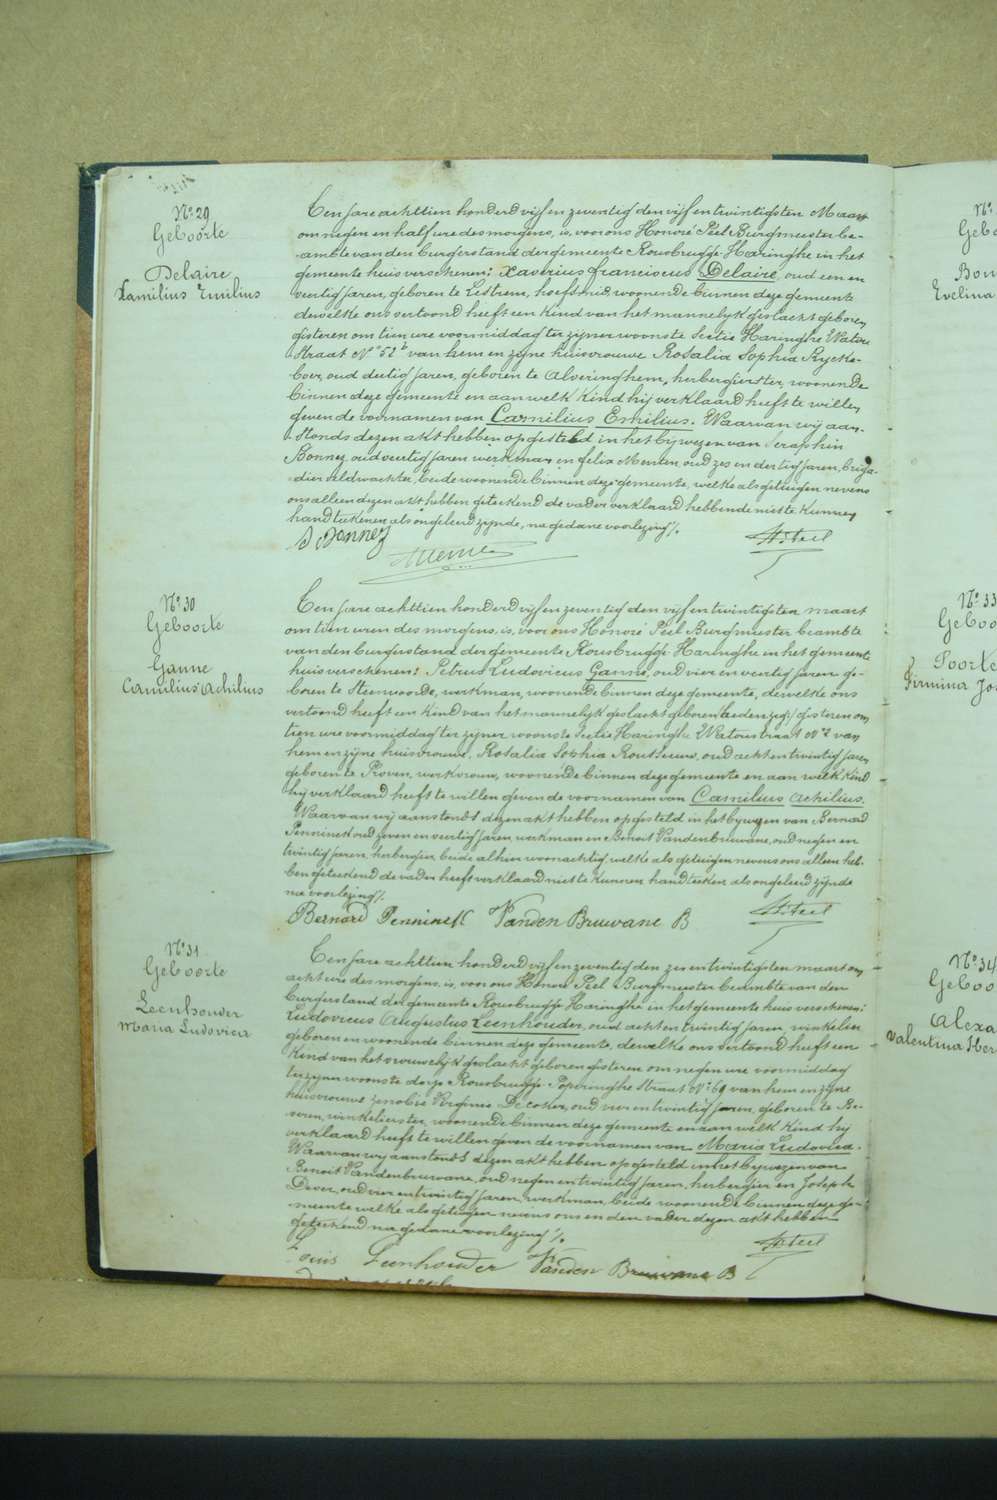 Nº 29
Geboorte
Delaire
Kamilius Emilius
Ten jare achttien honderd vijf en zeventig den vijf en twintigsten Maart
om negen en half ure des morgens, is, voor ons Honoré Peel Burgmeester be-
-ambte van den burgerstand der gemeente Rousbrugge-Haringhe in het
gemeente huis verschenen: Xaverius franciscus Delaire, oud een en
veertig jaren, geboren te Lestrem, hoefsmid, woonende binnen deze gemeente
dewelke ons vertoond heeft een kind van het mannelijk geslacht geboren
gisteren om tien ure voormiddag ter zijner woonste Sectie Haringhe Watou
Straat Nº 52 van hem en zijne huisvrouwe Rosalia Sophia Rycke-
-boer, oud dertig jaren, geboren te Alveringhem, herbergierster, woonende
binnen deze gemeente en aan welk kind hij verklaard heeft te willen
geven de voornamen van Camilius Emilius. Waarvan wij aan-
-stonds dezen akt hebben opgesteld in het bijwezen van Seraphin
Bonney oud veertig jaren werkman en felix Menten, oud zes en dertig jaren, briga-
-dier veldwachter, beide woonende binnen deze gemeente, welke als getuigen nevens
ons alleen dezen akt hebben geteekend de vader verklaard hebbende niet te kunnen
handteekenen als ongeleerd zijnde, na gedane voorlezing %.
S Bonney
H. Peel
Nº 30
Geboorte
Ganne
Camilius Achilius
Ten jare achttien honderd vijf en zeventig den vijf en twintigsten maart
om tien uren des morgens, is, voor ons Honoré Peel Burgmeester beambte
van den burgerstand der gemeente Rousbrugge Haringhe in het gemeente
huis verschenen: Petrus Ludovicus Ganne, oud vier en veertig jaren ge-
boren te Steenvoorde, werkman, woonende binnen deze gemeente, dewelke ons
vertoond heeft een kind van het mannelijk geslacht geboren gisteren om
tien ure voormiddag ter zijner woonste Sectie Haringhe Watoustraat Nº van
hem en zijne huisvrouwe, Rosalia Sophia Rousseeuw, oud acht en twintig jaren
geboren te Proven, werkvrouw, woonende binnen deze gemeente en aan welk kind
hij verklaard heeft te willen geven de voornamen van Camilius Achilius.
Waarvan wij aanstonds dezen akt hebben opgesteld in het bijwezen van Bernard
Penninck oud zeven en veertig jaren werkman en Benoit Vandenbruwane, oud negen en
twintig jaren, herbergier, beide alhier woonachtig welke als getuigen nevens ons alleen heb-
ben geteekend de vader heeft verklaard niet te kunnen handteeken als ongeleerd zijnde
na voorlezing %.
Bernard Penninck Vanden Bruwane B
H. Peel
Nº 31
Geboorte
Leenhouder
Maria Ludovica
Ten jare achttien honderd vijf en zeventig den zes en twintigsten maart om
acht ure des morgens, is, voor ons Honoré Peel Burgmeester beambte van den
burgerstand der gemeente Rousbrugge Haringhe in het gemeente huis verschenen:
Ludovicus Augustus Leenhouder, oud acht en twintig jaren, winkelier
geboren en woonende binnen deze gemeente, dewelke ons vertoond heeft een
kind van het vrouwelijk geslacht geboren gisteren om negen ure voormiddag
ter zijner woonste dorp Rousbrugge Poperinghe Straat Nº 69 van hem en zijne
huisvrouwe Zenobie Virginie Decoster, oud vier en twintig jaren, geboren te Be-
veren, winkelierster, woonende binnen deze gemeente en aan welk kind hij
verklaard heeft te willen geven de voornamen van Maria Ludovica.
Waarvan wij aanstonds dezen akt hebben opgesteld in het bijwezen van
Benoit Vandenbruwane, oud negen en twintig jaren, herbergier en Joseph
Dever, oud vier en twintig jaren, werkman, beide woonende binnen deze ge-
-meente welke als getuigen nevens ons en den vader dezen akt hebben
geteekend na gedane voorlezing %.
H. Peel
Louis Leenhouder Vanden Bruwane B
Nº 33
Geboo
Poorte
Firmina Jo
Nº 34
Geboo
Alexa
Valentina
Nº
Gebo
Bon
Evelina